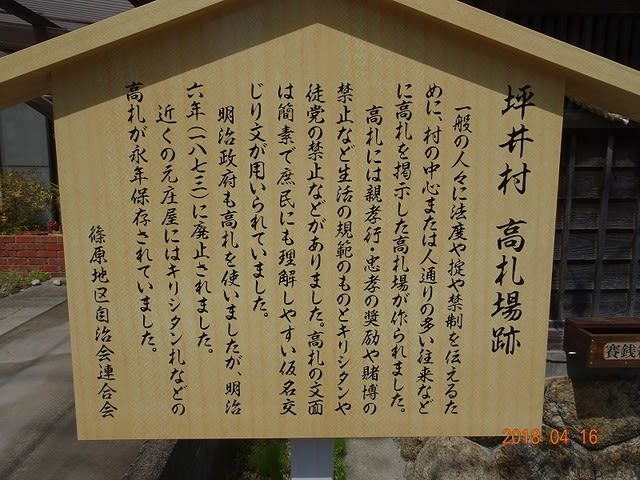 坪井村 高札場跡
一般の人々に法度や掟や禁制を伝えるた
めに、村の中心または人通りの多い往来など
に高札を掲示した高札場が作られました。
高札には親孝行・忠孝の奨励や賭博の
禁止など生活の規範のものとキリシタンや
徒党の禁止などがありました。高札の文面
は簡素で庶民にも理解しやすい仮名交
じり文が用いられていました。
明治政府も高札を使いましたが、明治
六年(一八七三)に廃止されました。
近くの元庄屋にはキリシタン札などの
高札が永年保存されていました。
篠原地区自治会連合会
賽銭
2018 04 16